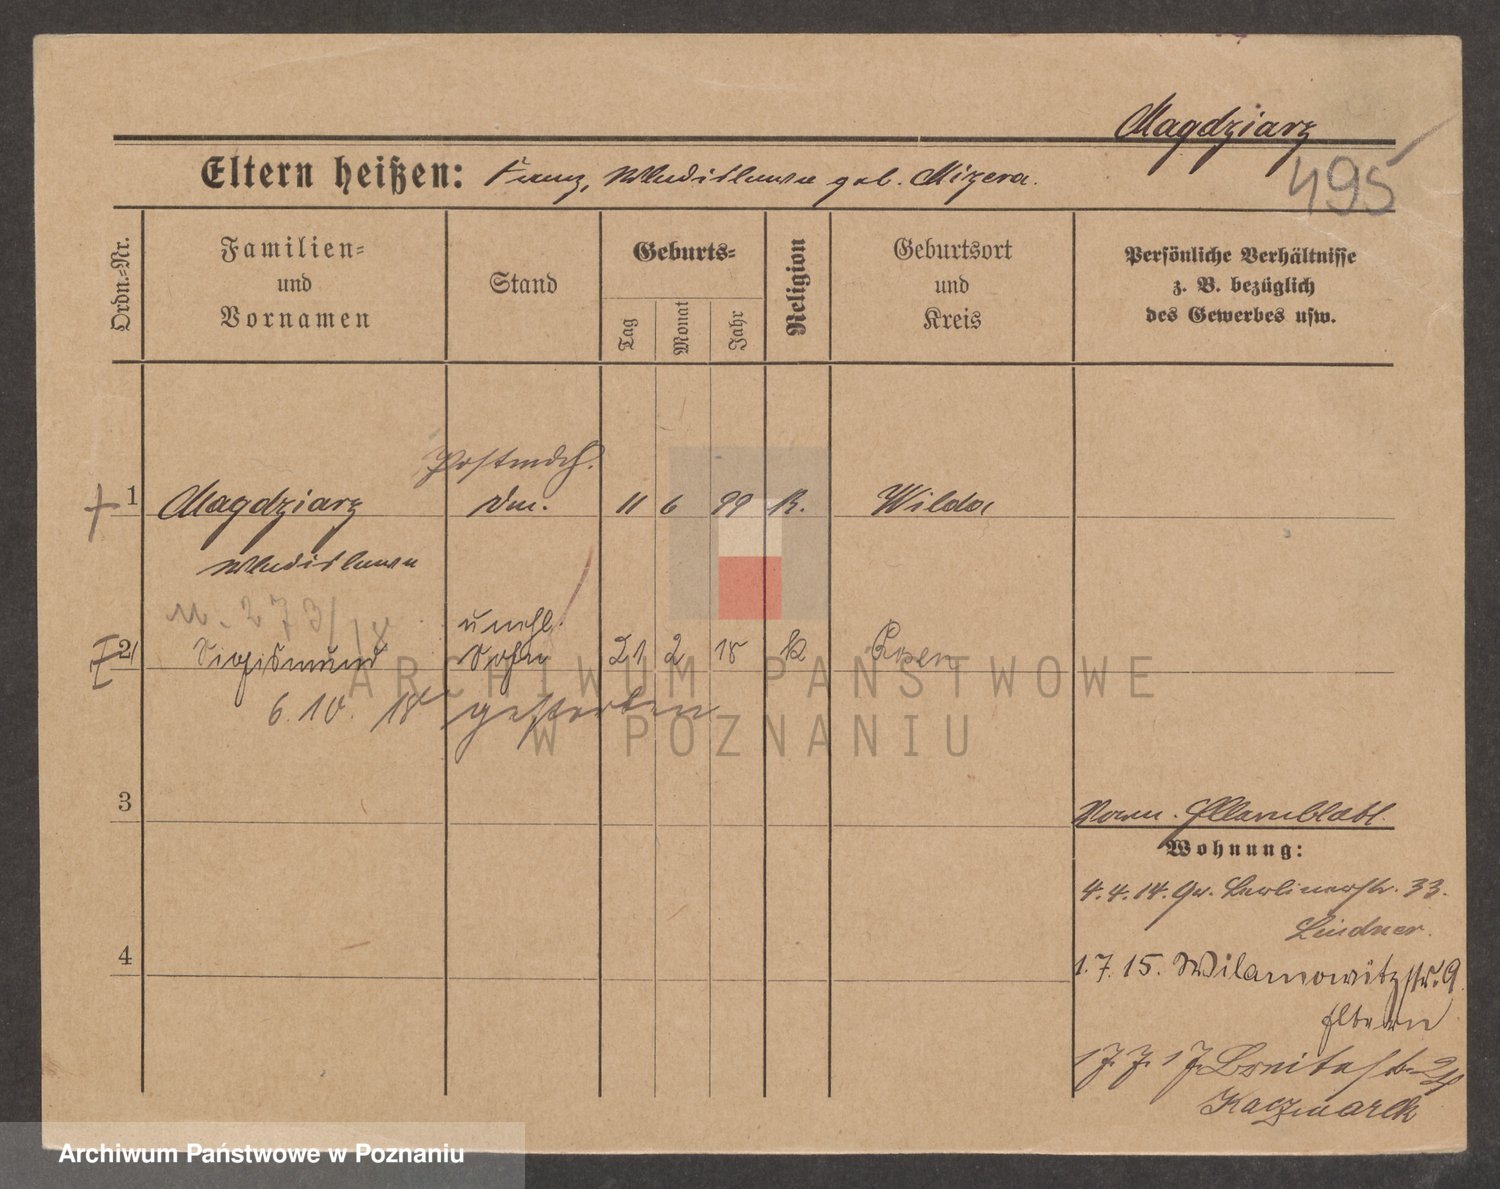 Magdziarz
Eltern heißen: Franz, Wladislawa geb. Mizera.
495
Ordn.=Nr.
Familien=
und
Vornamen
Stand
Geburts=
Tag
Monat
Jahr
Religion
Geburtsort
und
Kreis
Persönliche Verhältnisse
z. B. bezüglich
des Gewerbes usw.
1 Magdziarz 11 6 99 K. Wilda
Wladislawa
273/18
unehl.
2 Sigismund Sohn 21 2 18 K Posen
6. 10. 18 gestorben
3
Vorm. Elternblatt.
Wohnung:
4.4.14. Gr. Berlinerstr. 33.
Lindner.
4
1.7.15. Wilamowitzstr. 9.
Eltern
17.7.17. Breitestr. 24
Kaczmarek
ARCHIWUM PAŃSTWOWE
W POZNANIU
Archiwum Państwowe w Poznaniu